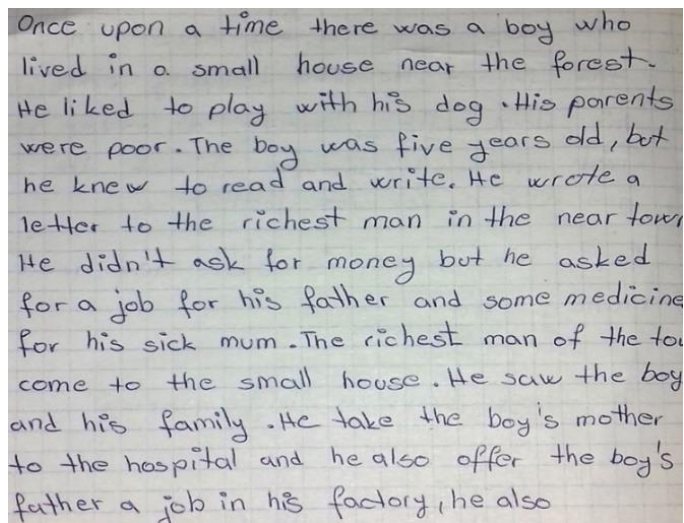 Once upon a time there was a boy who
lived in a small house near the forest.
He liked to play with his dog. His parents
were poor. The boy was five years old, but
he knew to read and write. He wrote a
letter to the richest man in the near town
He didn't ask for money but he asked
for a job for his father and some medicine
for his sick mum. The richest man of the tow
come to the small house. He saw the boy
and his family. He take the boy's mother
to the hospital and he also offer the boy's
father a job in his factory, he also